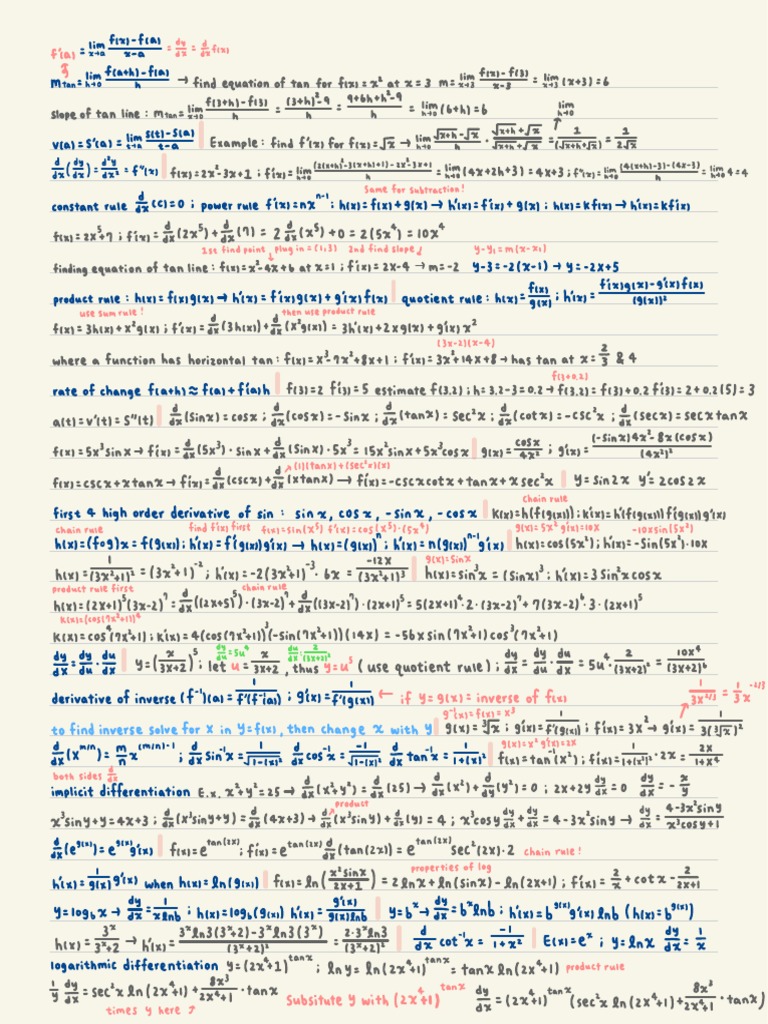 f'(a) = lim x→a (f(x)-f(a))/(x-a) = dy/dx = d/dx f(x)
m tan = lim h→0 (f(a+h)-f(a))/h → find equation of tan for f(x) = x² at x = 3 m = lim x→3 (f(x)-f(3))/(x-3) = lim x→3 (x+3) = 6
slope of tan line : m tan = lim x→0 (f(3+h)-f(3))/h = ((3+h)²-9)/h = (9+6h+h²-9)/h = lim x→0 (6+h) = 6 lim x→0
v(a) = s'(a) = lim t→a (s(t)-s(a))/(t-a) | Example: find f'(x) for f(x) = √x → lim h→0 (√(x+h)-√x)/h · (√(x+h)+√x)/(√(x+h)+√x) = 1/(√(x+h)+√x) = 1/(2√x)
d/dx (dy/dx) = d²y/dx² = f''(x) | f(x) = 2x²-3x+1 ; f'(x) = lim h→0 (2(x+h)²-3(x+h)+1)-2x²-3x+1/h = lim h→0 (4x+2h+3) = 4x+3 ; f''(x) = lim h→0 ((4(x+h)-3)-(4x-3))/h = lim h→0 4 = 4
same for subtraction!
constant rule d/dx (c) = 0 ; power rule f'(x) = nx^(n-1) ; h(x) = f(x)+g(x) → h'(x) = f'(x)+g(x) ; h(x) = kf(x) → h'(x) = kf'(x)
f(x) = 2x⁵+7 ; f'(x) = d/dx (2x⁵) + d/dx (7) = 2 d/dx (x⁵) + 0 = 2(5x⁴) = 10x⁴
1st find point, plug in = (1,3) 2nd find slope↓ y-y₁ = m(x-x₁)
finding equation of tan line : f(x) = x²-4x+6 at x=1 ; f'(x) = 2x-4 → m = -2 y-3 = -2(x-1) → y = -2x+5
product rule : h(x) = f(x)g(x) → h'(x) = f'(x)g(x)+g'(x)f(x) | quotient rule : h(x) = f(x)/g(x) ; h'(x) = (f'(x)g(x)-g'(x)f(x))/(g(x))²
use sum rule! then use product rule
f(x) = 3h(x)+x²g(x) ; f'(x) = d/dx (3h(x)) + d/dx (x²g(x)) = 3h'(x)+2xg(x)+g'(x)x²
(3x-2)(x-4)
where a function has horizontal tan : f(x) = x³-7x²+8x+1 ; f'(x) = 3x²+14x+8 → has tan at x = 2/3 & 4
f(3+0.2)
rate of change f(a+h) ≈ f(a)+f'(a)h | f(3)=2 f'(3)=5 estimate f(3.2) ; h=3.2-3=0.2 → f(3.2) = f(3)+0.2 f'(3) = 2+0.2(5) = 3
a(t) = v'(t) = s''(t) | d/dx (sinx) = cosx ; d/dx (cosx) = -sinx ; d/dx (tanx) = sec²x ; d/dx (cotx) = -csc²x ; d/dx (secx) = secxtanx
f(x) = 5x³sinx → f'(x) = d/dx (5x³)·sinx + d/dx (sinx)·5x³ = 15x²sinx+5x³cosx | g(x) = cosx/4x² ; g'(x) = ((-sinx)4x²-8x(cosx))/(4x²)²
(1)(tanx)+(sec²x)(x)
f(x) = cscx+xtanx → f'(x) = d/dx (cscx) + d/dx (xtanx) → f'(x) = -cscxcotx+tanx+xsec²x | y = sin2x y' = 2cos2x
chain rule
first 4 high order derivative of sin : sinx, cosx, -sinx, -cosx | k(x) = h(f(g(x))) ; k'(x) = h'(f(g(x)))f'(g(x))g'(x)
chain rule find f'(x) first f(x) = sin(x⁵) f'(x) = cos(x⁵)·(5x⁴) g(x) = 5x² g'(x) = 10x -10xsin(5x²)
h(x) = (f∘g)x = f(g(x)) ; h'(x) = f'(g(x))g'(x) → h(x) = (g(x))ⁿ ; h'(x) = n(g(x))^(n-1) g'(x) | h(x) = cos(5x²) ; h'(x) = -sin(5x²)·10x
g(x) = sinx
h(x) = 1/(3x²+1)² = (3x²+1)⁻² ; h'(x) = -2(3x²+1)⁻³· 6x = -12x/(3x²+1)³ | h(x) = sin³x = (sinx)³ ; h'(x) = 3sin²xcosx
product rule first chain rule
h(x) = (2x+1)⁵(3x-2)⁷ = d/dx ((2x+5)⁵)·(3x-2)⁷ + d/dx ((3x-2)⁷)·(2x+1)⁵ = 5(2x+1)⁴·2·(3x-2)⁷+7(3x-2)⁶·3·(2x+1)⁵
k(x) = (cos(7x²+1))⁴
k(x) = cos⁴(7x²+1) ; k'(x) = 4(cos(7x²+1))³(-sin(7x²+1))(14x) = -56xsin(7x²+1)cos³(7x²+1)
dy/du = 5u⁴ du/dx = 2/(3x+2)²
dy/dx = dy/du · du/dx | y = (x/(3x+2))⁵ ; let u = x/(3x+2) , thus y = u⁵ (use quotient rule) ; dy/dx = dy/du · du/dx = 5u⁴· 2/(3x+2)² = 10x⁴/(3x+2)⁶
derivative of inverse (f⁻¹)(a) = 1/f'(f⁻¹(a)) ; g'(x) = 1/f'(g(x)) ← if y = g(x) = inverse of f(x) 1/3x^(2/3) = 1/3 x^(-2/3)
g⁻¹(x) = f(x) = x³
to find inverse solve for x in y = f(x), then change x with y | g(x) = ∛x ; g'(x) = 1/f'(g(x)) ; f'(x) = 3x² → g'(x) = 1/3(∛x)²
g(x) = x² g'(x) = 2x
d/dx (x^(m/n)) = m/n x^((m/n)-1) ; d/dx sin⁻¹x = 1/√(1-(x)²) d/dx cos⁻¹x = -1/√(1-(x)²) d/dx tan⁻¹x = 1/(1+(x)²) | f(x) = tan⁻¹(x²) ; f'(x) = 1/(1+(x²)²) · 2x = 2x/(1+x⁴)
both sides d/dx
implicit differentiation E.x. x²+y²=25 → d/dx (x²+y²) = d/dx (25) → d/dx (x²) + d/dy (y²) = 0 ; 2x+2y dy/dx = 0 dy/dx = -x/y
product
x³siny+y = 4x+3 ; d/dx (x³siny+y) = d/dx (4x+3) → d/dx (x³siny) + d/dx (y) = 4 ; x³cosy dy/dx + dy/dx = 4-3x²siny → dy/dx = (4-3x²siny)/(x³cosy+1)
d/dx (e^g(x)) = e^g(x) g'(x) | f(x) = e^tan(2x) ; f'(x) = e^tan(2x) d/dx (tan(2x)) = e^tan(2x) sec²(2x)·2 chain rule!
properties of log
h'(x) = 1/g(x) g'(x) when h(x) = ln(g(x)) | f(x) = ln(x²sinx/(2x+1)) = 2lnx+ln(sinx)-ln(2x+1) ; f'(x) = 2/x + cotx - 2/(2x+1)
y = log_b x → dy/dx = 1/xlnb ; h(x) = log_b(g(x)) h'(x) = g'(x)/g(x)lnb | y = b^x → dy/dx = b^x lnb ; h'(x) = b^g(x) g'(x)lnb (h(x) = b^g(x))
h(x) = 3^x/(3^x+2) → h'(x) = (3^x ln3(3^x+2)-3^x ln3(3^x))/(3^x+2)² = 2·3^x ln3/(3^x+2)² | d/dx cot⁻¹x = -1/(1+x²) | E(x) = e^x ; y = lnx dy/dx = 1/x
logarithmic differentiation y = (2x⁴+1)^tanx ; lny = ln(2x⁴+1)^tanx = tanx ln(2x⁴+1) product rule
1/y dy/dx = sec²x ln(2x⁴+1) + 8x³/(2x⁴+1) · tanx Subsitute y with (2x⁴+1)^tanx dy/dx = (2x⁴+1)^tanx (sec²x ln(2x⁴+1) + 8x³/(2x⁴+1) · tanx)
times y here ↗